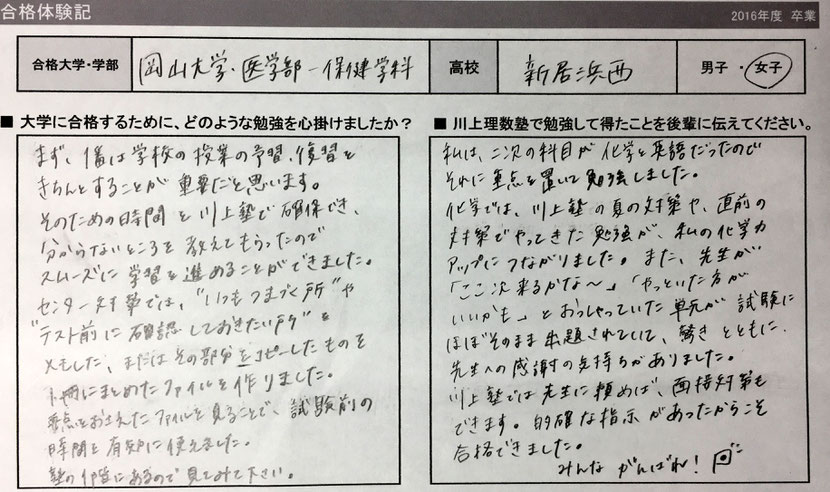 合格体験記
2016年度 卒業
合格大学・学部
岡山大学・医学部-保健学科
高校
新居浜西
男子・女子
■ 大学に合格するために、どのような勉強を心掛けましたか?
まず、普段は学校の授業の予習、復習を
きちんとすることが重要だと思います。
そのための時間を川上塾で確保でき、
分からないところを教えてもらったので
スムーズに学習を進めることができました。
センター対策では、"いつもつまづく所"や
"テスト前に確認しておきたい所"を
メモした、またはその部分をコピーしたものを
1冊にまとめたファイルを作りました。
要点をおさえたファイルを見ることで、試験前の
時間を有効に使えました。
塾の
にあるので見てみて下さい。
■ 川上理数塾で勉強して得たことを後輩に伝えてください。
私は、二次の科目が化学と英語だったので
それに重点を置いて勉強しました。
化学では、川上塾の夏の対策や、直前の
対策でやってきた勉強が、私の化学力
アップにつながりました。また、先生が
「ここ次来るかな~」「やっといた方が
いいかも」とおっしゃっていた単元が試験に
ほぼそのまま出題されていて、驚きとともに、
先生への感謝の気持ちがありました。
川上塾では先生に頼めば、面接対策も
できます。的確な指示があったからこそ
合格できました。
みんながんばれ!